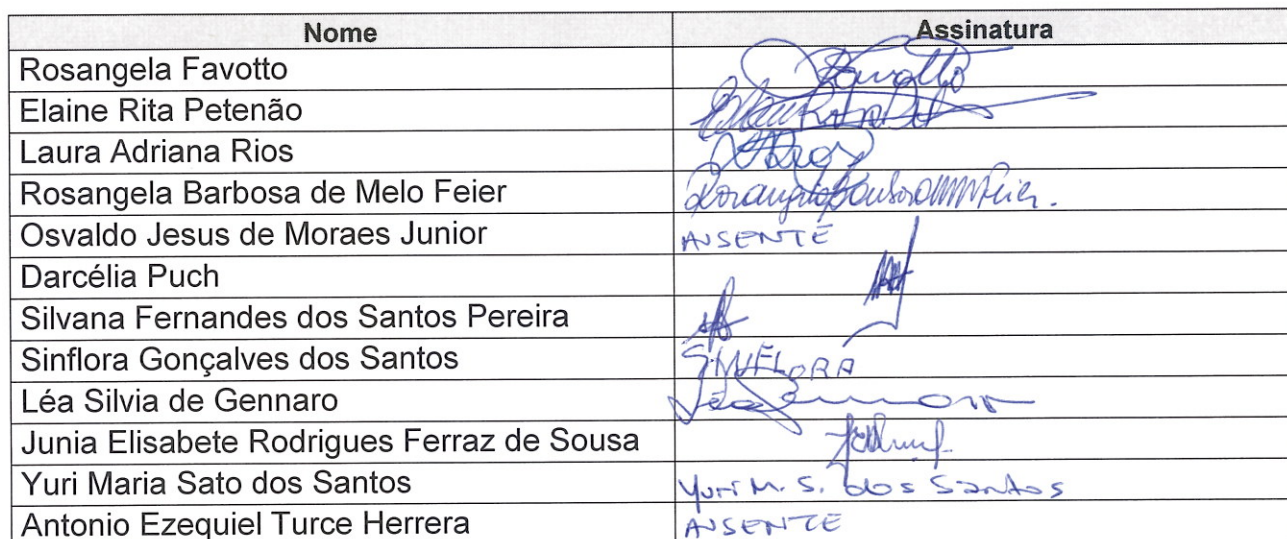 Nome Assinatura
Rosangela Favotto Favotto
Elaine Rita Petenão
Laura Adriana Rios
Rosangela Barbosa de Melo Feier Rosangela Feier.
Osvaldo Jesus de Moraes Junior AUSENTE
Darcélia Puch
Silvana Fernandes dos Santos Pereira
Sinflora Gonçalves dos Santos SINFLORA
Léa Silvia de Gennaro Léa
Junia Elisabete Rodrigues Ferraz de Sousa
Yuri Maria Sato dos Santos Yuri M. S. dos Santos
Antonio Ezequiel Turce Herrera AUSENTE